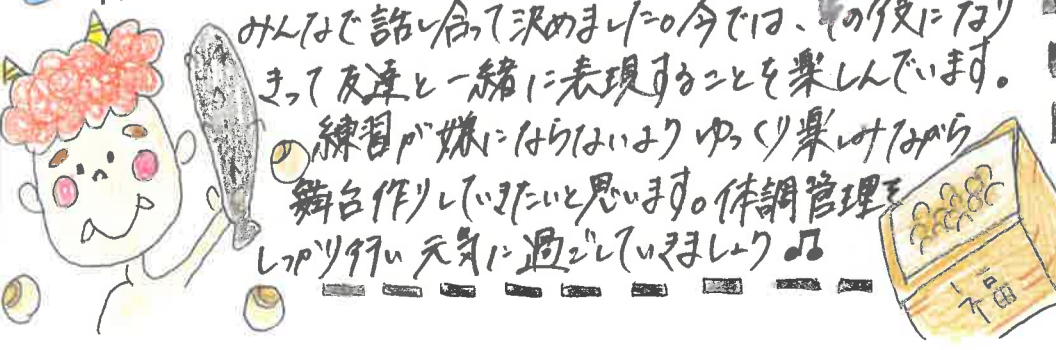 みんなで話し合って決めました。今では、その役になり
きって友達と一緒に表現することを楽しんでいます。
練習が嫌にならないよう ゆっくり楽しみながら
舞台作りしていきたいと思います。体調管理を
しっかり行い 元気に過ごしていきましょう♫
福